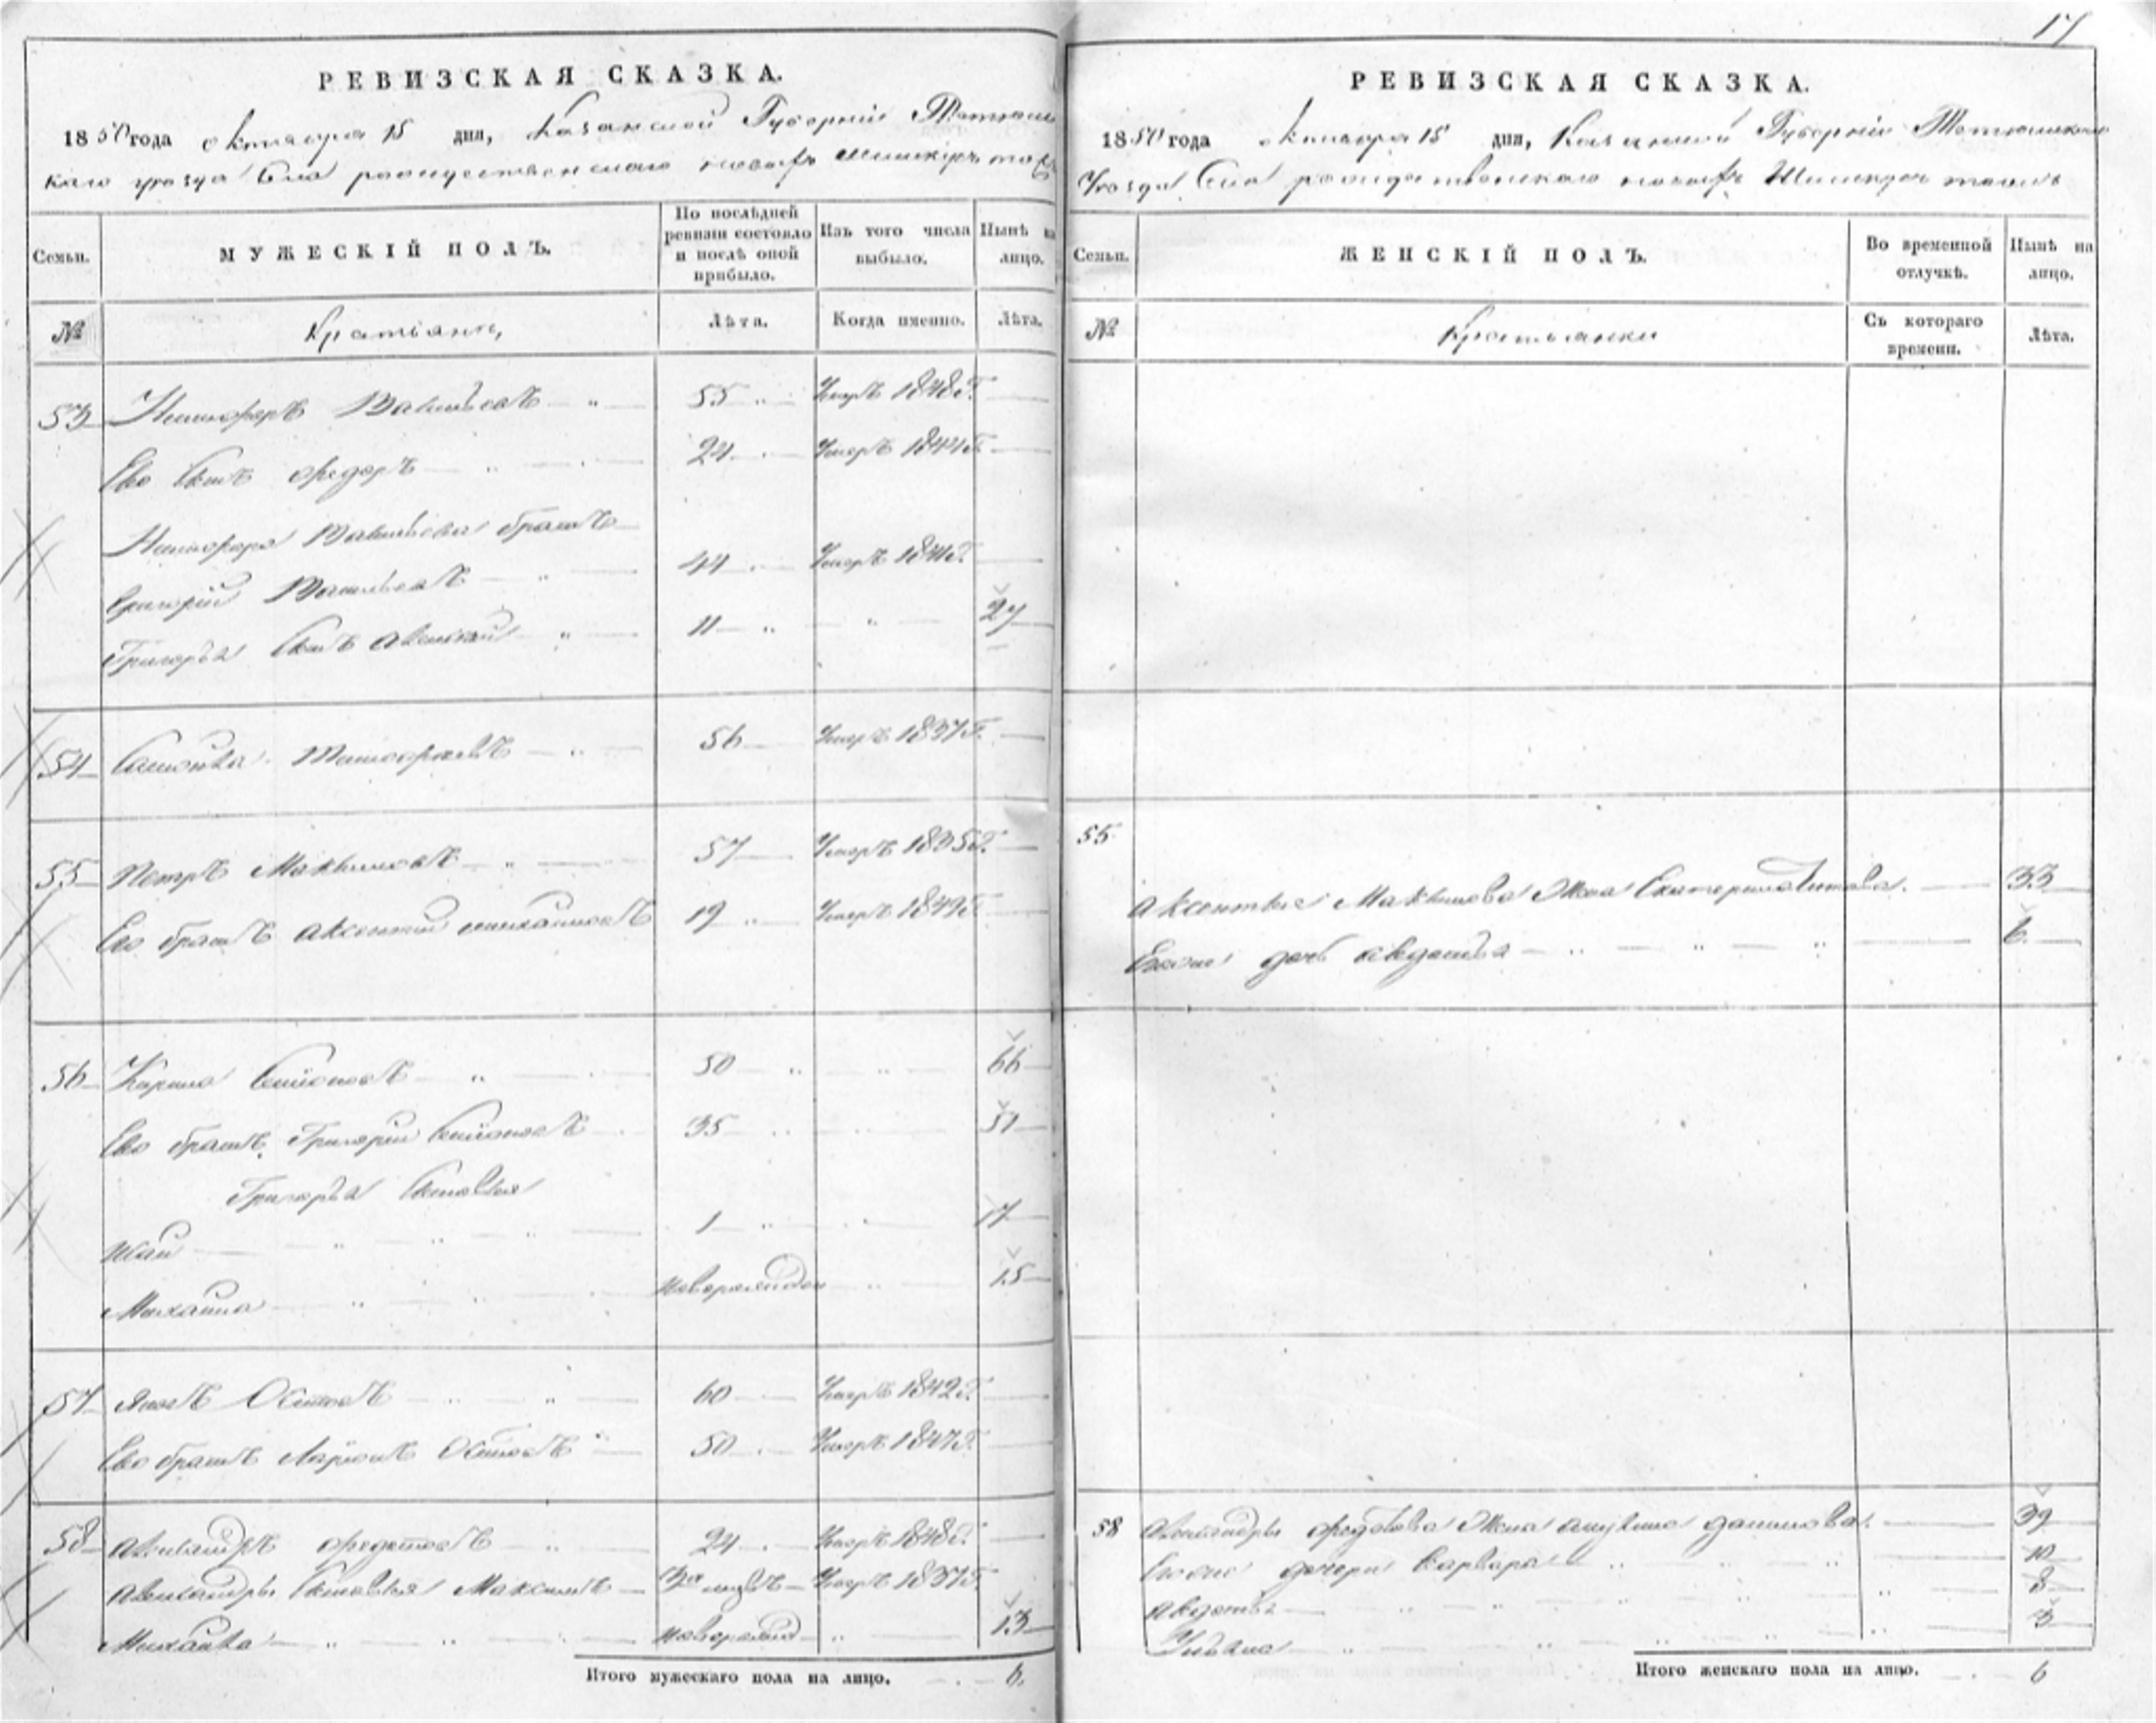 17
РЕВИЗСКАЯ СКАЗКА.
1850 года октября 15 дня, Казанской Губернiи Тетюш
каго уезда Села рождественскаго
Семьи.
МУЖЕСКIЙ ПОЛЪ.
По послѣдней ревизiи состояло и послѣ оной прибыло.
Изъ того числа выбыло.
Нынѣ на лицо.
№
Крестьяне,
Лѣта.
Когда именно.
Лѣта.
53 Никифоръ Васильевъ 55 Умеръ 1848г.
Ево Сынъ Федоръ 24 Умеръ 1844г.
Никифора Васильева братъ
Григорiй Васильевъ 44 Умеръ 1841г.
Григорья Сынъ Алексей 11 27
54 Тимофеевъ 56 Умеръ 1837г.
55 Петръ Максимовъ 57 Умеръ 1835г.
Ево братъ Аксентий 19 Умеръ 1849г.
56 Кирила Семионовъ 50 66
Ево братъ Григорiй Семионовъ 35 51
Григорья Сыновья
Иван 1 17
Михаила новорожден 15
57 Яковъ Осиповъ 60 Умеръ 1842г.
Ево братъ Ларионъ Осиповъ 50 Умеръ 1847г.
58 Александръ Федотовъ 24 Умеръ 1848г.
Александры Сыновья Максимъ Умеръ 1837г.
Михаила новорожд 13
Итого мужескаго пола на лицо. 6.
РЕВИЗСКАЯ СКАЗКА.
1850 года октября 15 дня, Казанской Губернiи Тетюшскаго
Уезда Села рождественскаго
Семьи.
ЖЕНСКIЙ ПОЛЪ.
Во временной отлучкѣ.
Нынѣ на лицо.
№
Крестьянки
Съ котораго времени.
Лѣта.
55
Аксентья Максимова Жена Екатерина 33
Евоная дочь Авдотья 6.
58 Александры Федотова Жена Данилова. 39
Евоные дочери Варвара 10
Авдотья 8
3
Итого женскаго пола на лицо. 6